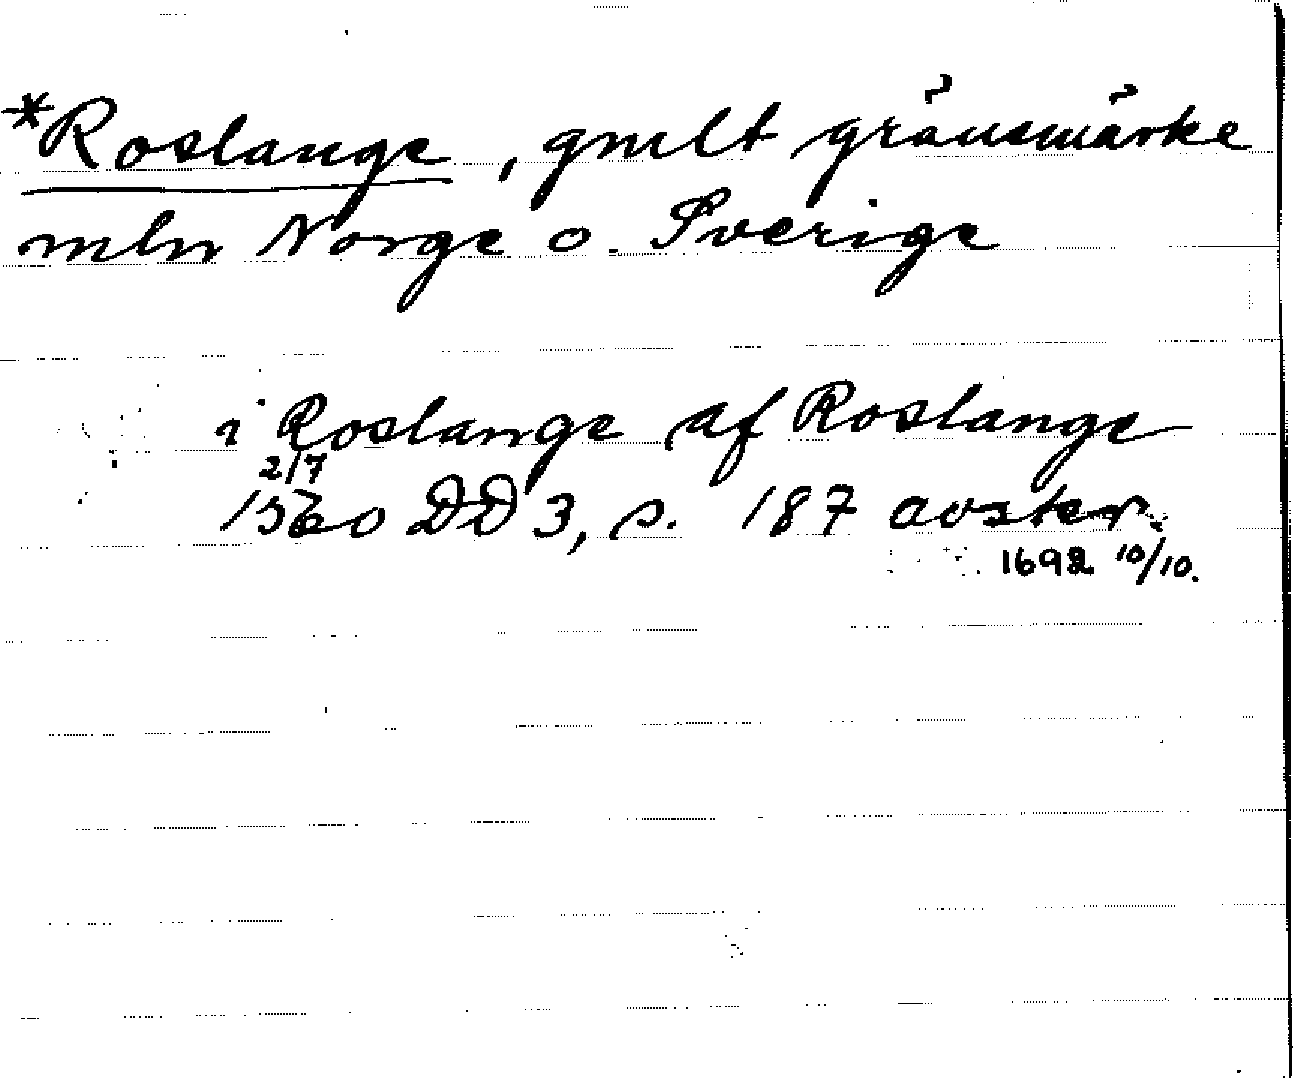 *Roslange, gmlt gränsmärke
mln Norge o. Sverige
i Roslange af Roslange
2/7
1560 DD 3, s. 187 avskr.
1692 10/10.